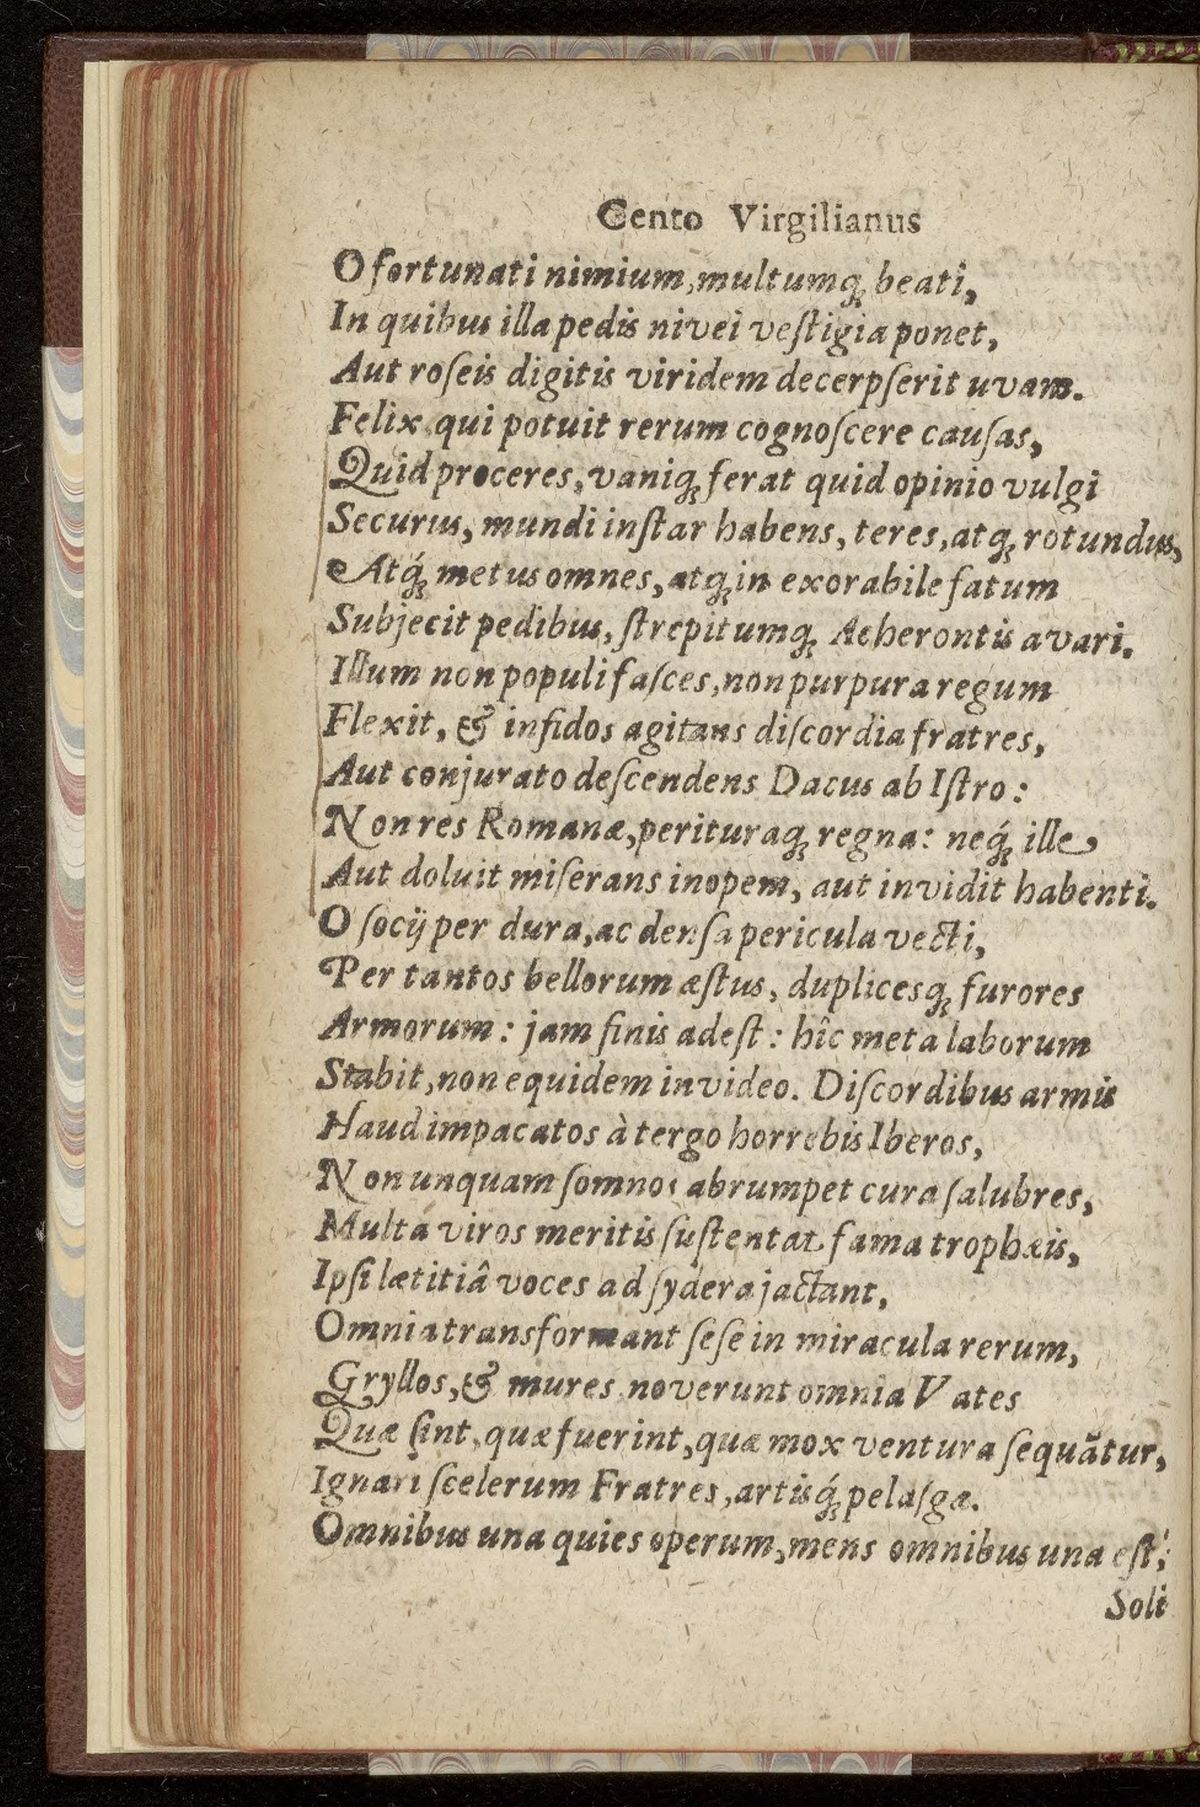 Cento Virgilianus
O fortunati nimium, multumq́ꝫ beati,
In quibus illa pedis nivei veſtigia ponet,
Aut roſeis digitis viridem decerpſerit uvam.
Felix qui potuit rerum cognoſcere cauſas,
Quid proceres, vaniqꝫ ferat quid opinio vulgi
Securus, mundi inſtar habens, teres, atqꝫ rotundus,
Atq́ꝫ metus omnes, atqꝫ in exorabile fatum
Subjecit pedibus, ſtrepitumqꝫ Acherontis avari.
Illum non populi faſces, non purpura regum
Flexit, & infidos agitans diſcordia fratres,
Aut conjurato deſcendens Dacus ab Iſtro:
Non res Romanæ, perituraqꝫ regna: neq́ꝫ ille
Aut doluit miſerans inopem, aut invidit habenti.
O ſocij per dura, ac denſa pericula vecti,
Per tantos bellorum æſtus, duplicesqꝫ furores
Armorum: jam finis adeſt: hîc meta laborum
Stabit, non equidem invideo. Diſcordibus armis
Haud impacatos à tergo horrebis Iberos,
Non unquam ſomnos abrumpet cura ſalubres,
Multa viros meritis ſuſtentat fama trophæis,
Ipſi lætitiâ voces ad ſydera jactant,
Omnia transformant ſeſe in miracula rerum,
Gryllos, & mures noverunt omnia Vates
Quæ ſint, quæ fuerint, quæ mox ventura ſequãtur,
Ignari ſcelerum Fratres, artisq́ꝫ pelaſgæ.
Omnibus una quies operum, mens omnibus una eſt;
Soli